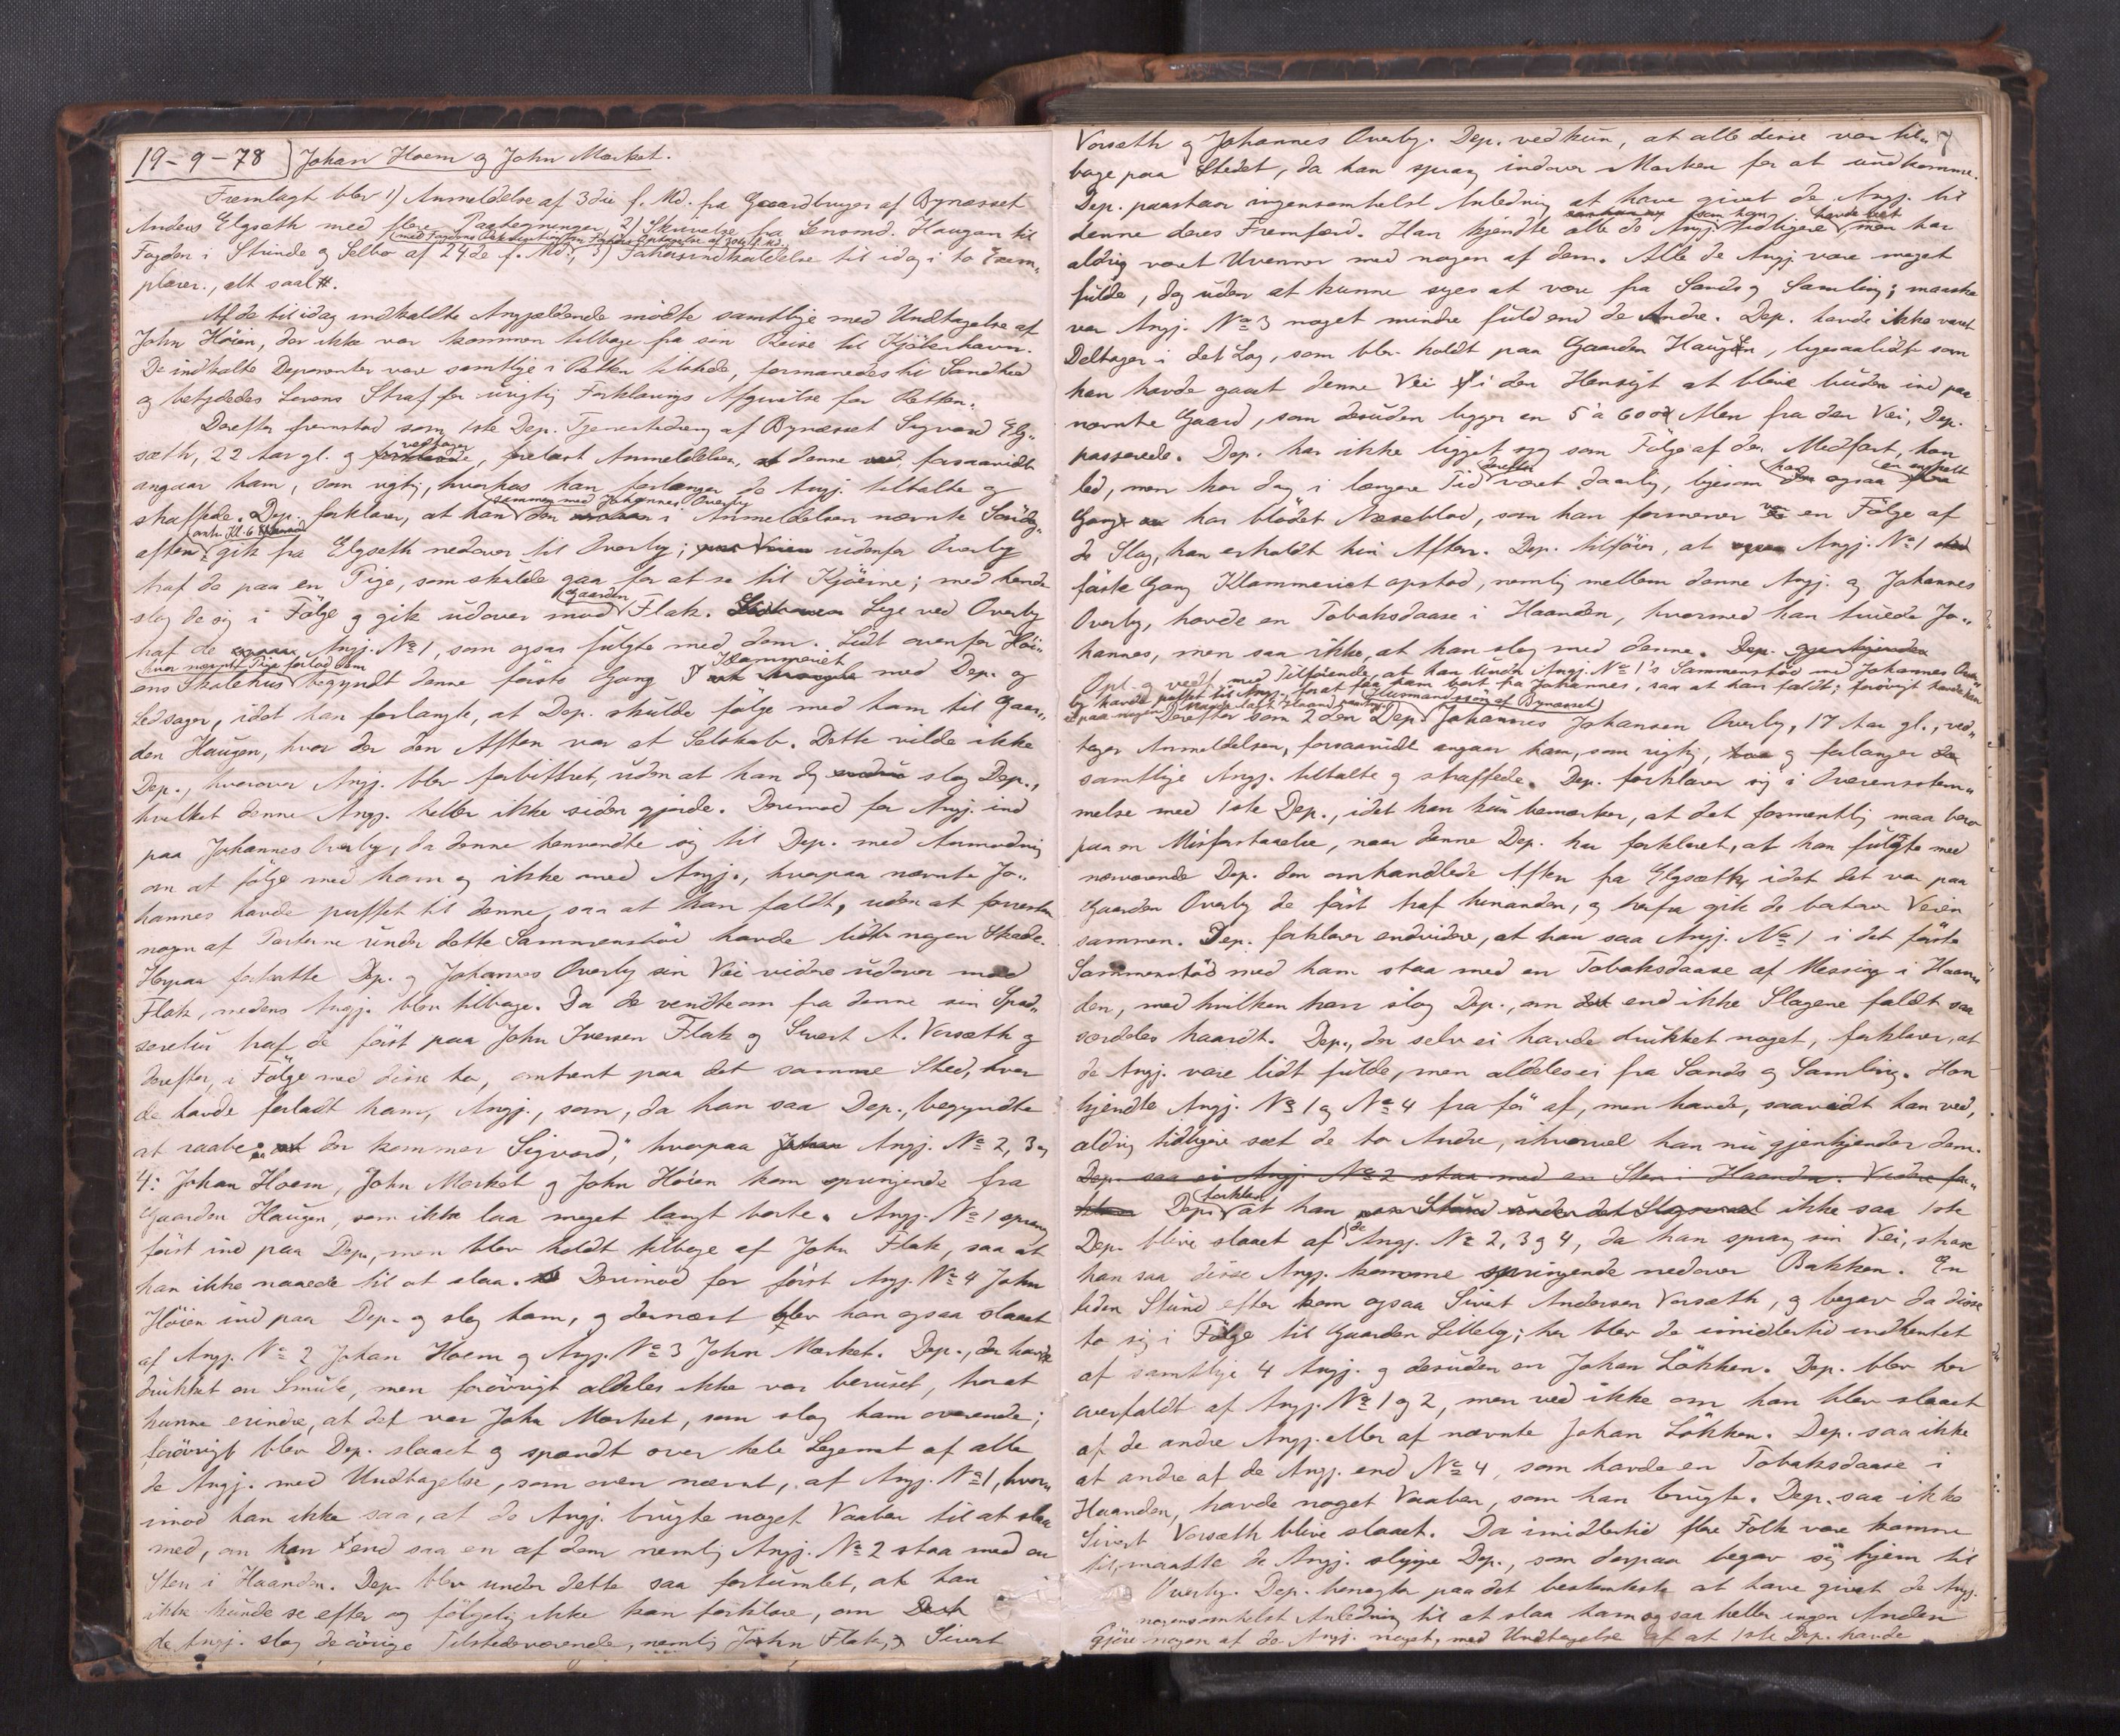 19-9-78 Johan Hoem og John Mærket.
Fremlagt blev 1) Anmeldelse af 3die f. Md. fra Gaardbruger af Bynæsset
Anders Elgseth med flere Paategninger, 2) Skrivelse fra Lensmd. Haugan til
Fogden i Strinde og Selbo af 24de f. Md., 3) Forhørsindkaldelse til idag i to Exem„
plarer., alt saal#.
Af de til idag indkaldte Angjældende mödte samtlige med Undtagelse af
John Höien, der ikke var kommen tilbage fra sin Reise til Kjöbenhavn.
De indkaldte Deponenter vare samtlige i Retten tilstede, formanedes til Sandhed
og betydedes Lovens Straf for urigtig Forklarings Afgivelse for Retten.
Derefter fremstod som 1ste Dep. Tjenestedreng af Bynæsset Sigvard Elg„
sæth, 22 Aar gl. og vedtager, forelæst Anmeldelsen, denne forsaavidt
angaar ham, som rigtig, hvorhos han forlanger de Angj. tiltalte og
straffede. Dep. forklarer, at han sammen med Johannes Overby den i Anmeldelsen nævnte Söndag
aften omtr. Kl. 6 gik fra Elgseth nedover til Overby; udenfor Overby
traf de paa en Pige, som skulde gaa for at se til Kjöerne; med hende
slog de sig i Fölge og gik udover mod Gaarden Flak. Lige ved Overby
traf de Angj. No 1, som ogsaa fulgte med dem. Lidt ovenfor Höi„
ens Skolehus hvor nævnte Pige forlod dem begyndte denne förste Gang Klammeriet med Dep. og
Ledsager, idet han forlangte, at Dep. skulde fölge med ham til Gaar„
den Haugen, hvor der den Aften var et Selskab. Dette vilde ikke
Dep., hvorover Angj. blev forbittret, uden at han dog slog Dep.,
hvilket denne Angj. heller ikke siden gjorde. Derimod for Angj. ind
paa Johannes Overby, da denne henvendte sig til Dep. med Anmodning
om at fölge med ham og ikke med Angj., hvorpaa nævnte Jo„
hannes havde puffet til denne, saa at han faldt, uden at forresten
nogen af Parterne under dette Sammenstöd havde lidt nogen Skade.
Herpaa fortsatte Dep. og Johannes Overby sin Vei videre udover mod
Flak, medens Angj. blev tilbage. Da de vendte om fra denne sin Spad„
seretur traf de först paa John Iversen Flak og Sivert A. Vorsæth og
derefter, i Fölge med disse to, omtrent paa det samme Sted, hvor
de havde forladt ham, Angj., som, da han saa Dep., begyndte
at raabe: „der kommer Sigvard," hvorpaa Angj. No 2, 3 og
4: Johan Hoem, John Mærket og John Höien kom springende fra
Gaarden Haugen, som ikke laa meget langt borte. Angj. No 1 sprang
först ind paa Dep., men blev holdt tilbage af John Flak, saa at
han ikke naaede til at slaa. Derimod for först Angj. No 4 John
Höien ind paa Dep. og slog ham, og dernæst blev han ogsaa slaaet
af Angj. No 2 Johan Hoem og Angj. No 3 John Mærket. Dep., der havde
drukket en Smule, men forövrigt aldeles ikke var beruset, tror at
kunne erindre, at det var John Mærket, som slog ham overende;
forövrigt blev Dep. slaaet og spændt over hele Legemet af alle
de Angj. med Undtagelse, som oven nævnt, af Angj. No 1, hvor„
imod han ikke saa, at de Angj. brugte noget Vaaben til at slaa
med, om han end saa en af dem nemlig Angj. No 2 staa med en
Sten i Haanden. Dep. blev under dette saa fortumlet, at han
ikke kunde se efter og fölgelig ikke kan forklare, om
de Angj. slog de övrige Tilstedeværende, nemlig John Flak, Sivert
Vorsæth og Johannes Overby. Dep. ved kun, at alle disse var til„
bage paa Stedet, da han sprang indover Marken for at undkomme.
Dep. paastaar ingensomhelst Anledning at have givet de Angj. til
denne deres Fremfærd. Han kjendte alle de Angj. tidligere men har
aldrig været Uvenner med nogen af dem. Alle de Angj. vare meget
fulde, dog uden at kunne siges at være fra Sands og Samling; maaske
var Angj. No 3 noget mindre fuld end de Andre. Dep. havde ikke været
Deltager i det Lag, som blev holdt paa Gaarden Haugen, ligesaalidt som
han havde gaaet denne Vei i den Hensigt at blive buden ind paa
nævnte Gaard, som desuden ligger en 5 à 600 Alen fra den Vei, Dep.
passerede. Dep. har ikke ligget syg som Fölge af den Medfart, han
led, men har dog i længere Tid derefter været daarlig, ligesom han ogsaa en enkelt
Gang har blödet Næseblod, som han formener var en Fölge af
de Slag, han erholdt hin Aften. Dep. tilföier, at Angj. No 1
förste Gang Klammeriet opstod, nemlig mellem denne Angj. og Johannes
Overby, havde en Tobaksdaase i Haanden, hvormed han truede Jo„
hannes, men saa ikke, at han slog med denne.
Opl. og vedt. med Tilföiende, at han under Angj. No 1's Sammenstöd med Johannes Over„
by havde puffet til Angj., for at faa ham bort fra Johannes, saa at han faldt; forövrigt havde han
ei paa nogen Maade lagt Haand paa Angj.
Derefter som 2den Dep. Husmandssön af Bynæsset Johannes Johansen Overby, 17 Aar gl., ved„
tager Anmeldelsen, forsaavidt angaar ham, som rigtig, og forlanger
samtlige Angj. tiltalte og straffede. Dep. forklarer sig i Overensstem„
melse med 1ste Dep., idet han kun bemærker, at det formentlig maa bero
paa en Misforstaaelse, naar denne Dep. har forklaret, at han fulgte med
nærværende Dep. den omhandlede Aften fra Elgsæth, idet det var paa
Gaarden Overby de först traf hinanden, og herfra gik de bortover Veien
sammen. Dep. forklarer endvidere, at han saa Angj. No 1 i det förste
Sammenstöd med ham staa med en Tobaksdaase af Messing i Haan„
den, med hvilken han slog Dep., om end ikke Slagene faldt saa
særdeles haardt. Dep., der selv ei havde drukket noget, forklarer, at
de Angj. vare lidt fulde, men aldeles ei fra Sands og Samling. Han
kjendte Angj. No 1 og No 4 fra för af, men havde, saavidt han ved,
aldrig tidligere seet de to Andre, ihvorvel han nu gjenkjender dem.
Dep. saa ei Angj. No 2 staa med en Sten i Haanden. Videre for„
klarer Dep. forklarer at han ikke saa 1ste
Dep. blive slaaet af de Angj. No 2, 3 og 4, da han sprang sin Vei, strax
han saa disse Angj. komme springende nedover Bakken. En
liden Stund efter kom ogsaa Sivert Andersen Vorsæth, og begav da disse
to sig i Fölge til Gaarden Lilleby; her blev de imidlertid indhentet
af samtlige 4 Angj. og desuden en Johan Lökken. Dep. blev her
overfaldt af Angj. No 1 og 2, men ved ikke om han blev slaaet
af de andre Angj. eller af nævnte Johan Lökken. Dep. saa ikke
at andre af de Angj. end No 4, som havde en Tobaksdaase i
Haanden, havde noget Vaaben, som han brugte. Dep. saa ikke
Sivert Vorsæth blive slaaet. Da imidlertid flere Folk vare komne
til, maatte de Angj. slippe Dep., som derpaa begav sig hjem til
Overby. Dep. benegter paa det bestemteste at have givet de Angj.
nogensomhelst Anledning til at slaa ham og saa heller ingen Anden
gjöre nogen af de Angj. noget, med Undtagelse af at 1ste Dep. havde